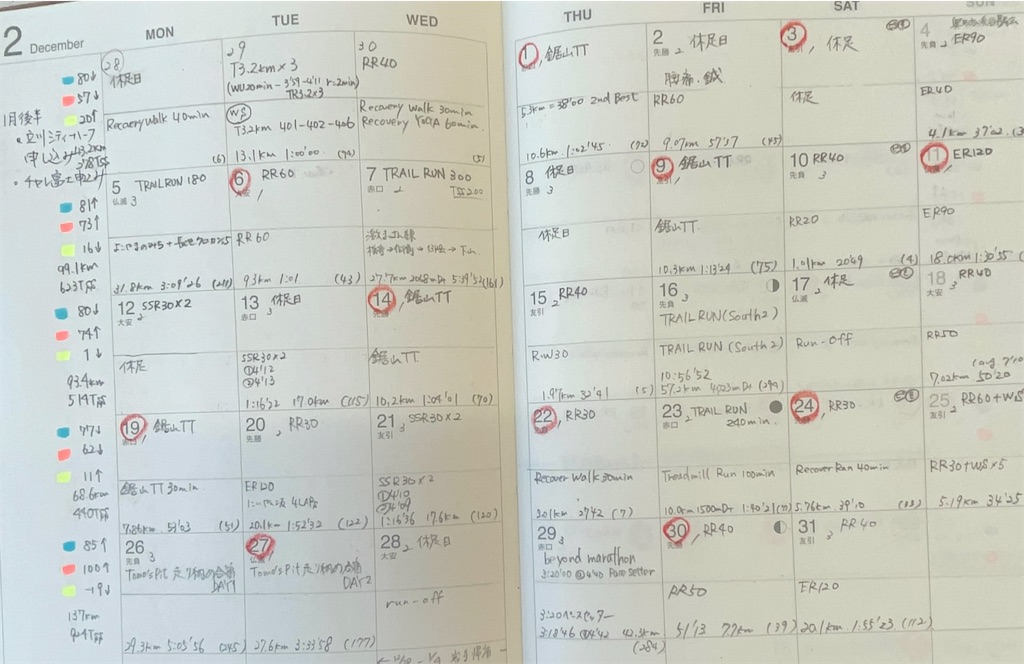 12 December
MON
TUE
WED
THU
FRI
SAT
SUN
80↓
57↓
20↑
1月後半
申し込み
28
休足日
Recovery Walk 40min
(6)
29
T3.2km×3
(WU20min - 3'59-4'11 r=2min)
TR3.2×3
WS
T3.2km 401-402-406
13.1km 1:00'00
30
RR40
Recovery Walk 30min
Recovery YOGA 60min
(5)
1, 鋸山TT
5.3km=38'00 2nd Best
10.6km 1:02'45
2 先負 2 休足日
腹痛
RR60
9.07km 57'17 (45)
3, 休足
休足
4 先負 ER90
ER40
4.1km 37'02
81↑
73↑
16↓
99.1km
623T
5 仏滅 3 TRAILRUN 180
31.8km 3:09'26
6 大安 RR60
RR60
9.3km 1:01 (43)
7 赤口 2 TRAIL RUN 300
TSS200
27.7km
8 先勝 3 休足日
休足日
9 友引 鋸山TT
鋸山TT
10.3km 1:13'24 (75)
10 先負 3 RR40
RR20
1.01km 20'49 (4)
11, ER120
ER90
18.0km 1:30'55
80↓
74↑
1↓
93.4km
519T
12 大安 2 SSR30×2
休足
13 赤口 3 休足日
SSR30×2
①4'12
②4'13
1:16'32 17.0km (115)
14, 鋸山TT
鋸山TT
10.2km 1:04'01 (70)
15 友引 2 RR40
RW30
1.97km 32'41 (5)
16 先負 3
TRAIL RUN (South2)
TRAIL RUN (South2)
10:56'52
57.2km 4023mD+ (299)
17 仏滅 2 休足
Run-off
18 大安 3 RR40
RR50
7.02km 50'20
77↓
62↓
11↑
68.6km
440T
19, 鋸山TT
鋸山TT 30min
51'03 (51)
20 先勝 , RR30
ER120
4LAPS
20.1km 1:52'32 (122)
21 友引 3 SSR30×2
SSR30×2
①4'10
②4'09
1:16'36 17.6km (120)
22, RR30
Recover Walk 30min
3.01km 27'42 (7)
23 赤口 2 TRAIL RUN
240min.
Treadmill Run 100min
10.0km 1500mD+ 1:40'21
24, RR30
Recover Ran 40min
5.76km 39'10
25 友引 RR60+WS
RR30+WS×5
5.19km 34'25
85↑
100↑
-19↓
137km
924T
26 先負 3
Tomo's Pit 走り納め合宿
DAY1
29.3km 5:05'56 (245)
27 仏滅
Tomo's Pit 走り納め合宿
DAY2
27.6km 3:33'58 (177)
28 大安 2 休足日
run-off
29 赤口 3
beyond marathon
3:20'00 @4'40 Pace Setter
3:20ペースセッター
3:18'46 @4'42 42.3km
(284)
30, RR40
RR50
51'13 7.7km (39)
31 先勝 3 RR40
ER120
20.1km 1:55'23 (112)